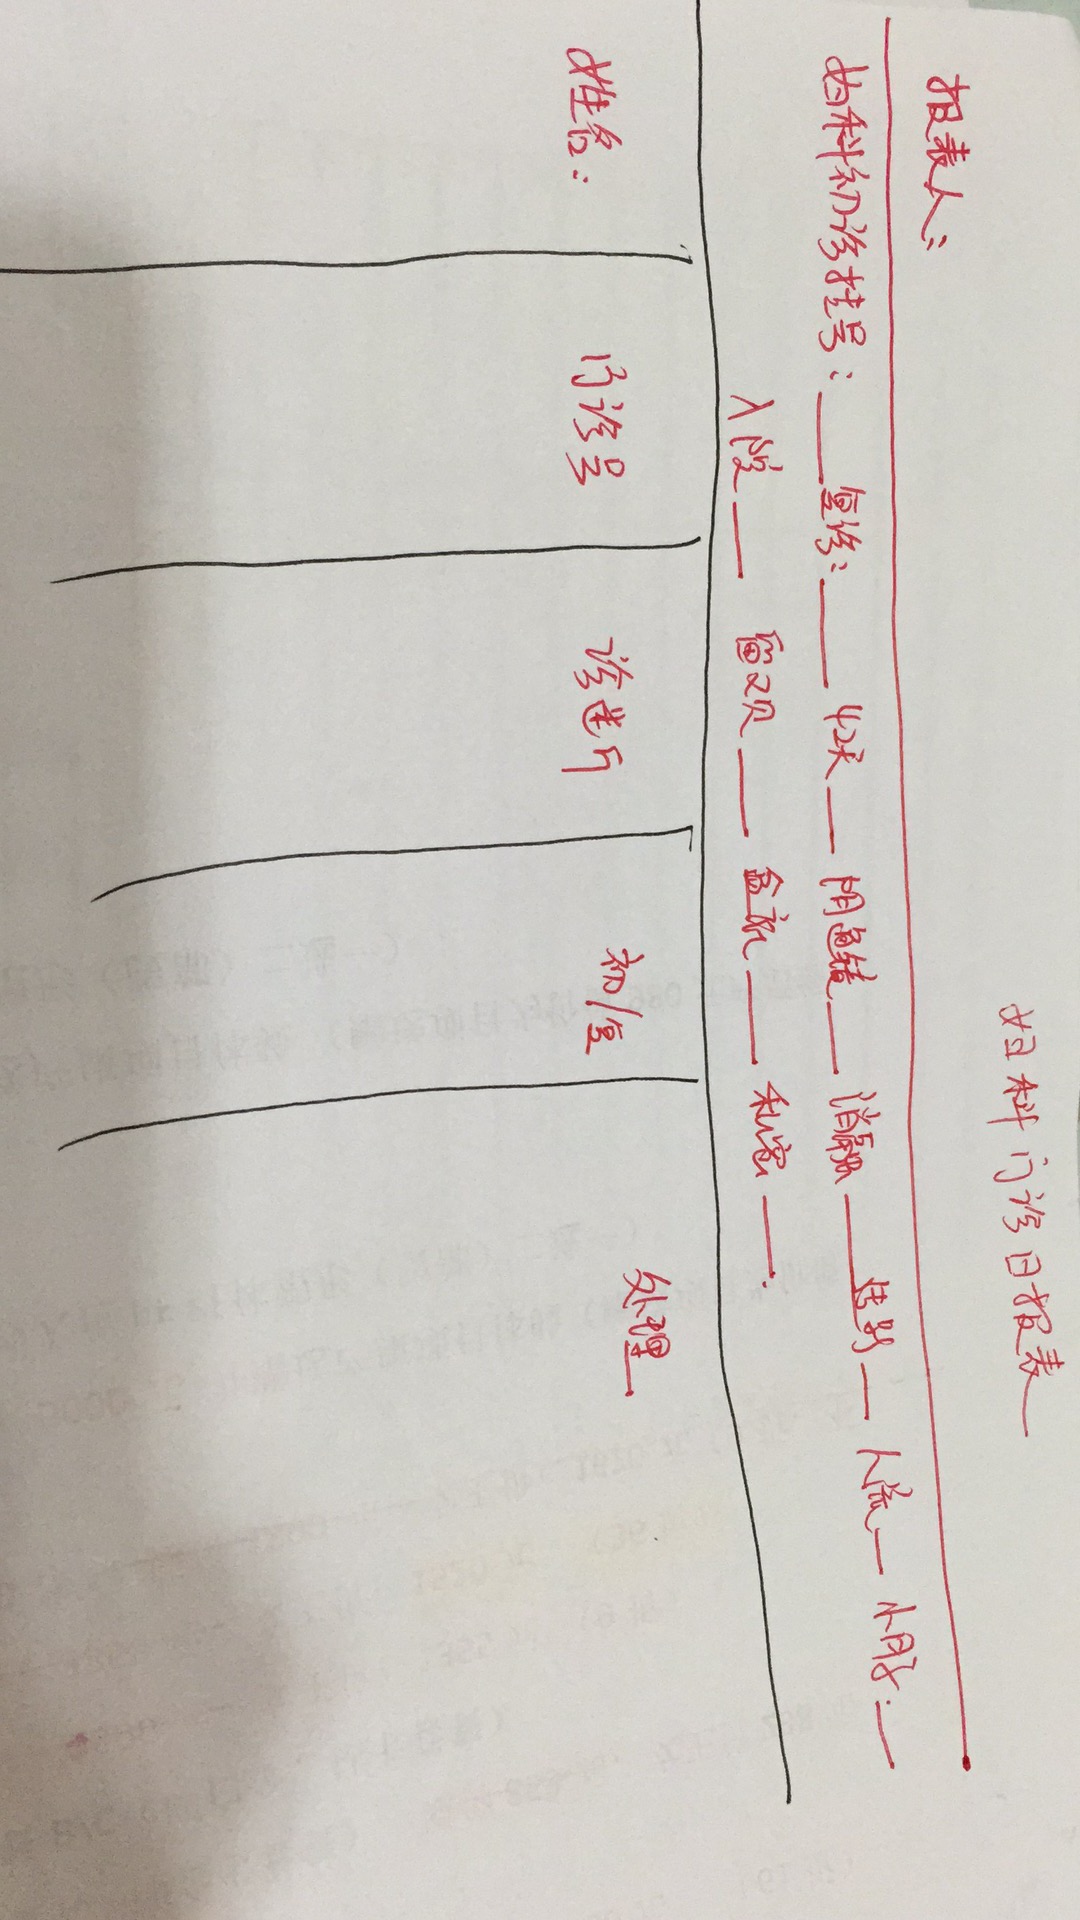 妇科门诊日报表
报表人:
妇科初诊挂号:____复诊:____ 42天___ 阴道镜___ 消融____ ___ 人流__ 小月子:__
入院___ 留观___ 盆底___ 私密___.
姓名: 门诊号 诊断 初/复 处理